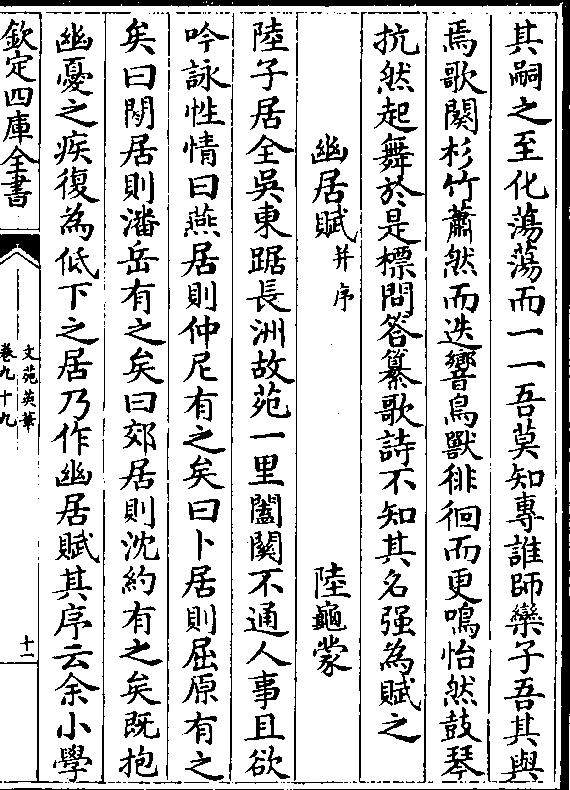 其嗣之至化蕩蕩而一一吾莫知專誰師欒子吾其與
焉歌闋杉竹蕭然而迭響鳥獸徘徊而更鳴怡然鼓琴
抗然起舞於是標問答纂歌詩不知其名强為賦之
幽居賦并序 陸龜蒙
陸子居全吳東踞長洲故苑一里闔闗不通人事且欲
吟詠性情曰燕居則仲尼有之矣曰卜居則屈原有之
矣曰閒居則潘岳有之矣曰郊居則沈約有之矣既抱
幽憂之疾復為低下之居乃作幽居賦其序云余小學
欽定四庫全書
文苑英華
卷九十九
十一